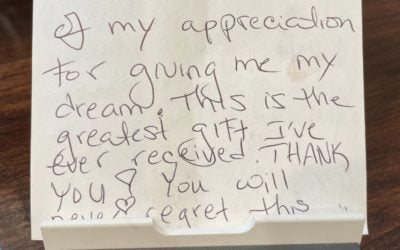 of my appreciation
for giving me my
dream. This is the
greatest gift I've
ever received. THANK
YOU! You will
never regret this